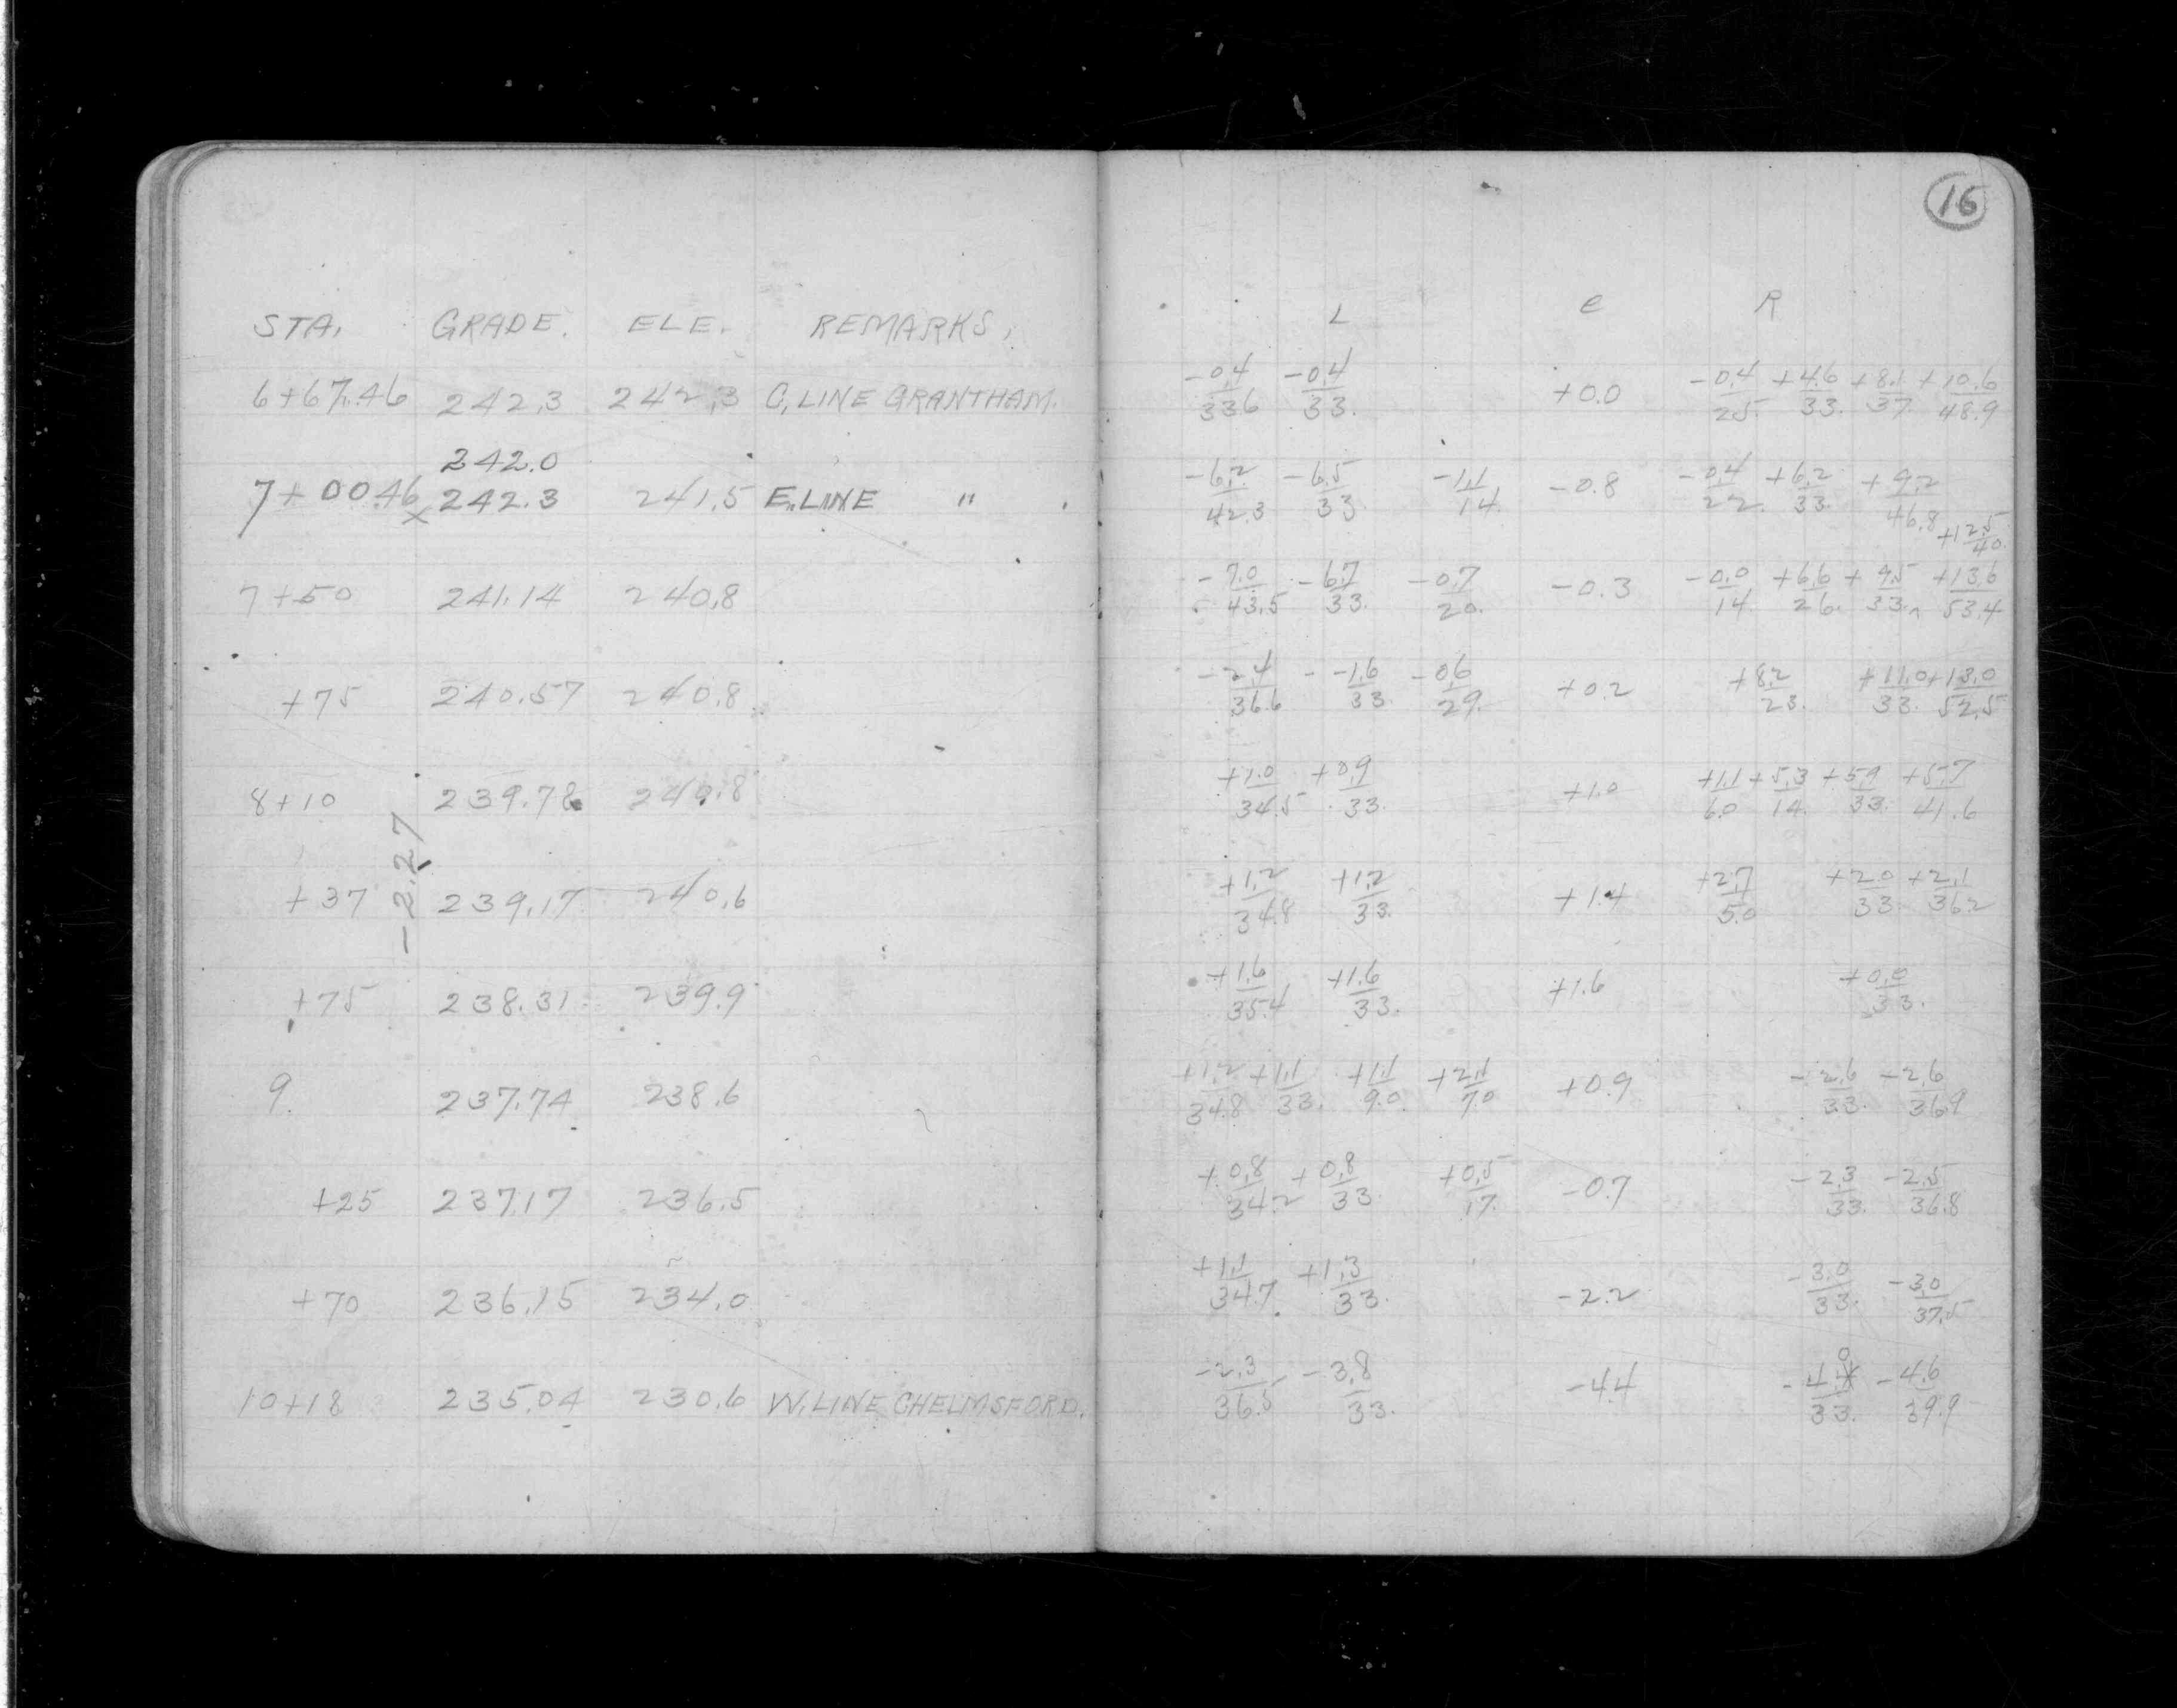 16
STA. GRADE. ELE. REMARKS. L C R
6+67.46 242.3 242.3 C, LINE GRANTHAM. -0.4/33.6 -0.4/33. +0.0 -0.4/25. +4.6/33. +8.1/37. +10.6/48.9
242.0
7+00.46 x 242.3 241.5 E. LINE " . -6.2/42.3 -6.5/33 -1.1/14. -0.8 -0.4/22. +6.2/33. +9.2/46.8 +12.5/40.
7+50 241.14 240.8 -7.0/43.5 -6.7/33. -0.7/20. -0.3 -0.0/14. +6.6/26. +9.5/33. ^ +13.6/53.4
+75 240.57 240.8 -2.4/36.6 -1.6/33. -0.6/29. +0.2 +8.2/23. +11.0/33. +13.0/52.5
8+10 239.78 240.8 +1.0/34.5 +0.9/33. +1.0 +1.1/6.0 +5.3/14. +5.9/33. +5.7/41.6
-2.27
+37 239.17 240.6 +1.2/34.8 +1.2/33. +1.4 +2.7/5.0 +2.0/33 +2.1/36.2
+75 238.31 239.9 +1.6/35.4 +1.6/33. +1.6 +0.0/33.
9. 237.74 238.6 +1.2/34.8 +1.1/33. +1.1/9.0 +2.1/7.0 +0.9 -2.6/33. -2.6/36.9
+25 237.17 236.5 +0.8/34.2 +0.8/33. +0.5/17. -0.7 -2.3/33. -2.5/36.8
+70 236.15 234.0 +1.1/34.7 +1.3/33. -2.2 -3.0/33. -3.0/37.5
10+18 235.04 230.6 W. LINE CHELMSFORD. -2.3/36.5 -3.8/33. -4.4 -4.0/33. -4.6/39.9